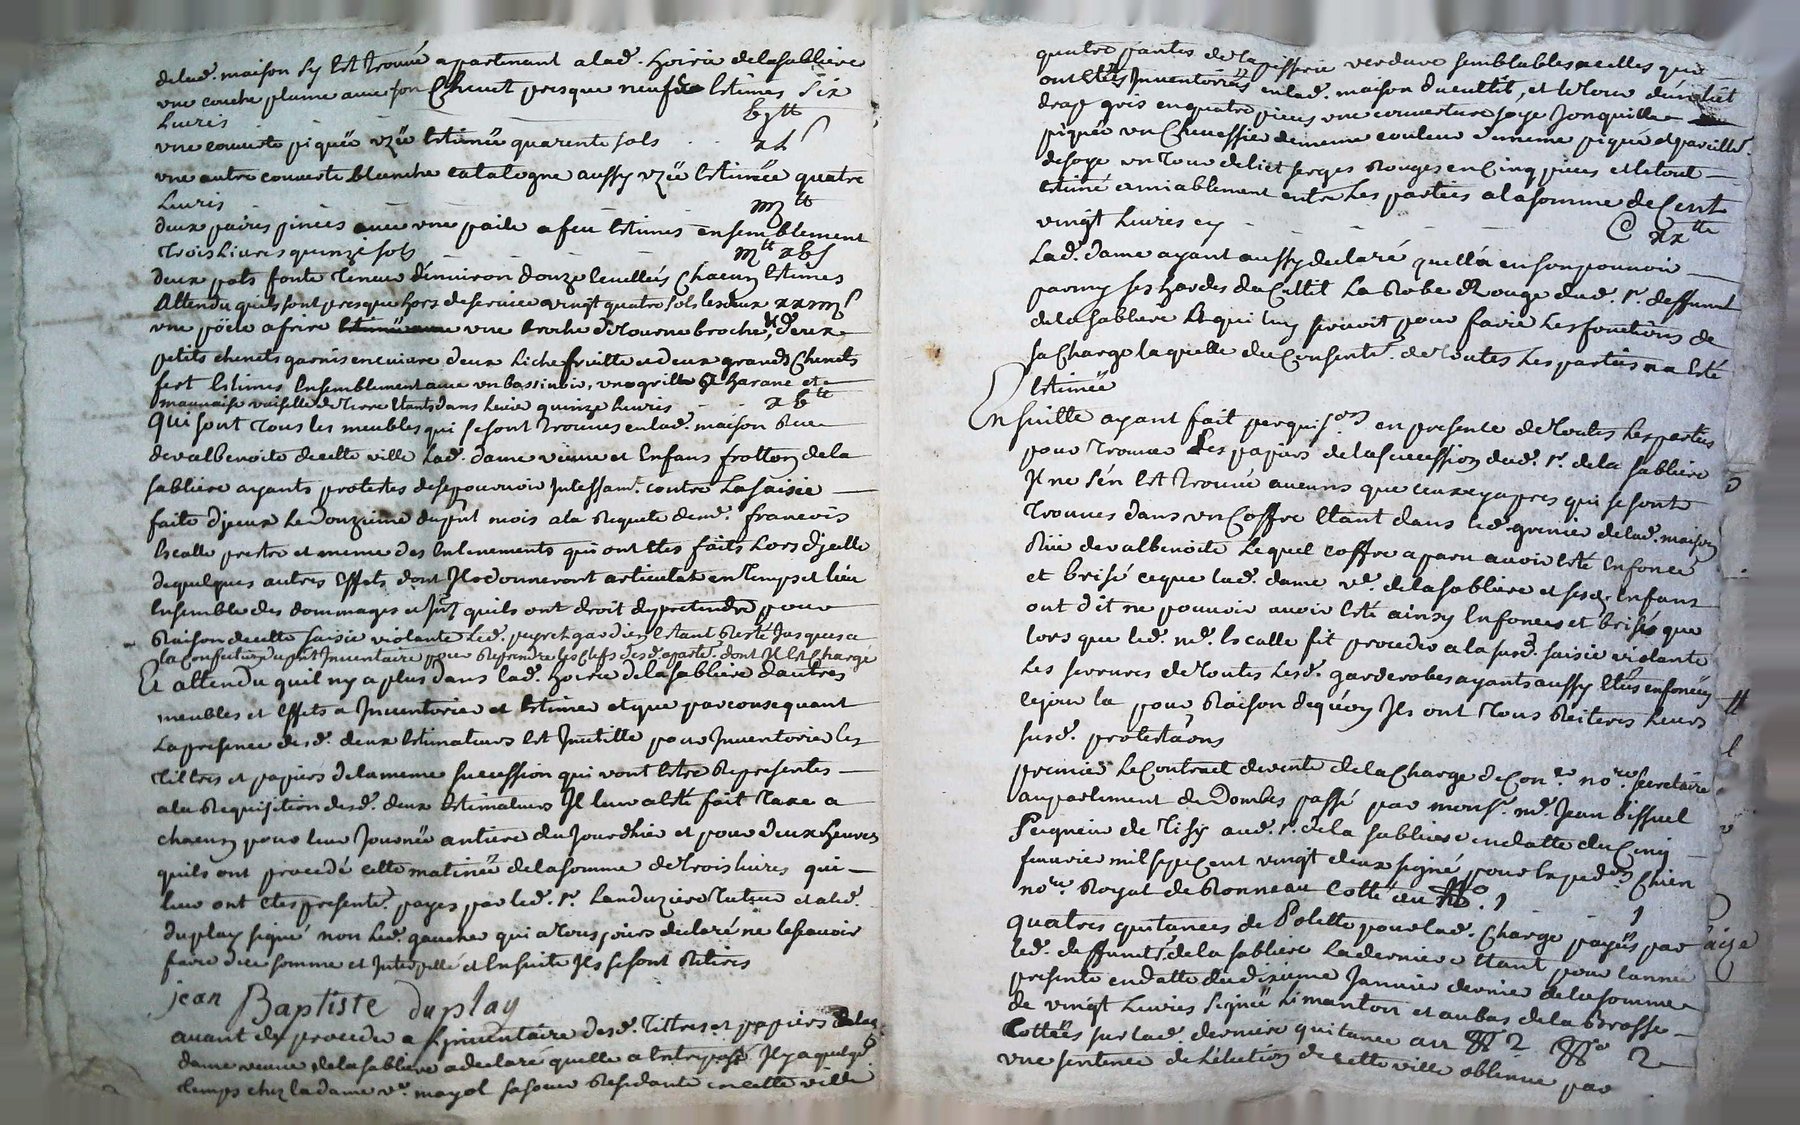 delad. maison sy est trouvé apartenant alad. hoirie delasabliere
une couche plume avec son Chevet presque neufs Estimés six
Livres
une couverte piquée uzée Estimée quarente sols
une autre couverte blanche catalogne aussy uzée Estimée quatre
Livres
deux paires pinces avec une paile a feu Estimés ensemblement
Trois Livres quinze sols
deux pots fonte Teneur d'environ douze Cuellées Chacun Estimés
Attendu quils sont presque hors deservice avingt quatre sols les deux xxiiij s
une pöele afrire une broche & Tournebroche, deux
petits chenets garnis encuivre deux Lichefritte et deux grands Chenets
fert Estimés Ensemblement avec un bassinoir, une grille & harans et
mauvaise vaiselle de Terre Etants dans Levier quinze Livres
Qui sont Tous les meubles qui se sont trouvés enlad. maison Rue
devalbenoite decette ville Lad. dame veuve et Enfans frotton dela
sabliere ayants protestés desepourvoir Incessam.t contre La saisie
faite d'jceux Le Douzieme dupnt mois ala Requete de me. francois
Escalle prestre et meme des Enlevements qui ont Etés faits Lors d'jcelle
dequelques autres Effets dont Jls donneront articulat en Temps et Lieu
Ensemble des dommages et quils ont droit dy pretendre pour
Raison decette saisie violante Led. peyret gardien Estant Resté Jusques a
la Confection du pnt Inventaire pour Reprendre les Clefs desd. apartem. dont Il est Chargé
Et attendu quil ny a plus dans lad. hoirie delasabliere dautres
meubles et Effets a Inventorier et Estimer et que par consequant
La presence desd. deux Estimateurs Est Inutille pour Inventorier les
Tiltres et papiers delameme succession qui vont Estre Representés
ala Requisition desd. deux Estimateurs Il leur a Esté fait Taxe a
chacun pour leur Journée antiere du Jourdhier et pour deux heures
quils ont procedé cette matinée delasomme de trois livres qui
leur ont Etes presentem. payés par led. sr. Landuziere Tuteur et aled.
duplay signé non Led. gaucher qui a Tousjours declaré ne le scavoir
faire dece sommé et Interpellé et Ensuite Ils se sont Retirés
jean Baptiste duplay
avant de proceder a L'jnventaire desd. Tiltres et papiers Lad.
dame veuve delasabliere adeclaré quelle a Entreposé Il y a quelque
temps chez la dame ve. mayol sa soeur Residante en cette ville
quatre pantes de Tapisserie verdure semblables acelles qui
ont Etés Inventoriées enlad. maison ducultit, et le Tour d'un Lit
drap gris en quatre pieces une couverture soye Jonquille
piquée un Couessin dememe couleur et meme piqué & pareille
desoye un Tour delict serges Rouges en Cinq pieces et le tout
Estimé amiablement entre Les parties a la somme de Cent
vingt Livres cy
C xx tt
Lad. dame ayant aussy declaré quella en son pouvoir
parmy ses hardes du Cultit La Robe Rouge dud. sr. deffunt
delasabliere Et qui luy servoit pour faire Les fonctions de
sa Charge laquelle du Consentem.t de Toutes Les parties na Eté
Estimée
Ensuitte ayant fait perquison. en presence de Toutes Les parties
pour Trouver Les papiers delasuccession dud. sr. dela sabliere
Il ne s'en Est trouvé aucuns que ceux cy apres qui se sont
Trouvés dans un Coffre Etant dans led. grenier delad. maison
Rüe devalbenoite Lequel coffre a paru avoir Eté Enfoncé
et brisé ceque lad. dame ve. delasabliere et sesd. Enfans
ont dit ne pouvoir avoir Eté ainsy Enfoncé et brisés que
lors que led. me. Escalle fit proceder ala susd. saisie violante
Les serrures de Toutes Lesd. garderobes ayants aussy Etés enfoncées
cejour la pour Raison dequoy Ils ont Tous Reiteres Leurs
susd. protestaons
premier Le Contract devente dela Charge de Con.er no.re secretaire
auparlement de Dombes passé par mons.r me. Jean bissuel
Seigneur de Tisy aud. sr. dela sabliere endatte du Cinq
fevrier mil sept Cent vingt deux signé pour Chien
no.re Royal de Ronneau Cotté au No. 1
1
quatres quitances de Polette pour lad. Charge payés par
led. deffunt sr. dela sabliere La derniere Etant pour lannée
presente en datte du dixieme Janvier dernier delasomme
de vingt Livres Signée Limanton et au bas dela Brosse
Cottées sur lad. derniere quitance au No 2 No 2
une sentence de Lélection de cette ville obtenue par